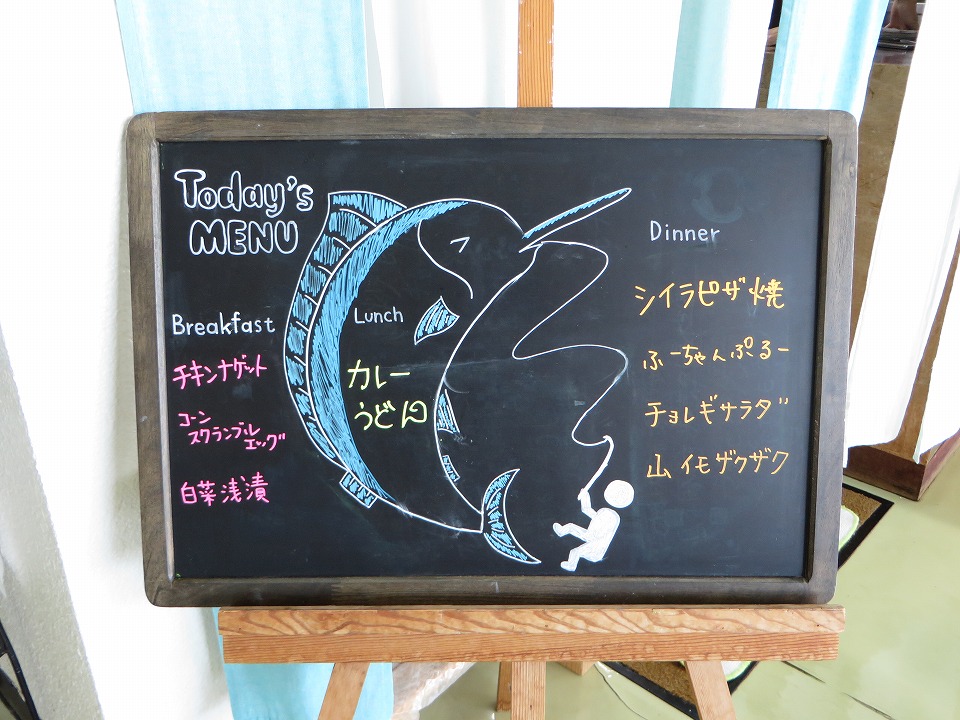 Today's
MENU
Breakfast
チキンナゲット
コーン
スクランブル
エッグ
白菜浅漬
Lunch
カレー
うどん
Dinner
シイラピザ焼
ふーちゃんぷるー
チョレギサラダ
山イモザクザク